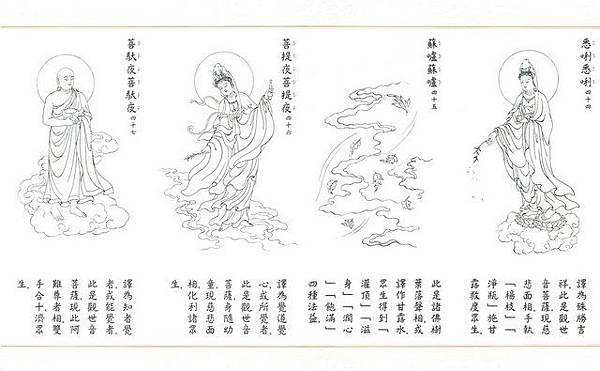 悉唎悉唎 四十四
譯為殊勝吉
祥，此是觀世
音菩薩現慈
悲面相，手執
「楊枝」「
淨瓶」施甘
露救度眾生。
蘇嚧蘇嚧 四十五
此是諸佛樹
葉落聲相或
譯作甘露水
眾生得到「
灌頂」「滋
身」「潤心
」「飽滿」
四種法益。
菩提夜菩提夜 四十六
譯為覺道覺
心或所覺者，
此是觀世音
菩薩身隨幼
童現慈悲面
相化利諸眾
生。
菩馱夜菩馱夜 四十七
譯為知者覺
者或能覺者，
此是觀世音
菩薩現此阿
難尊者相雙
手合十濟眾
生。